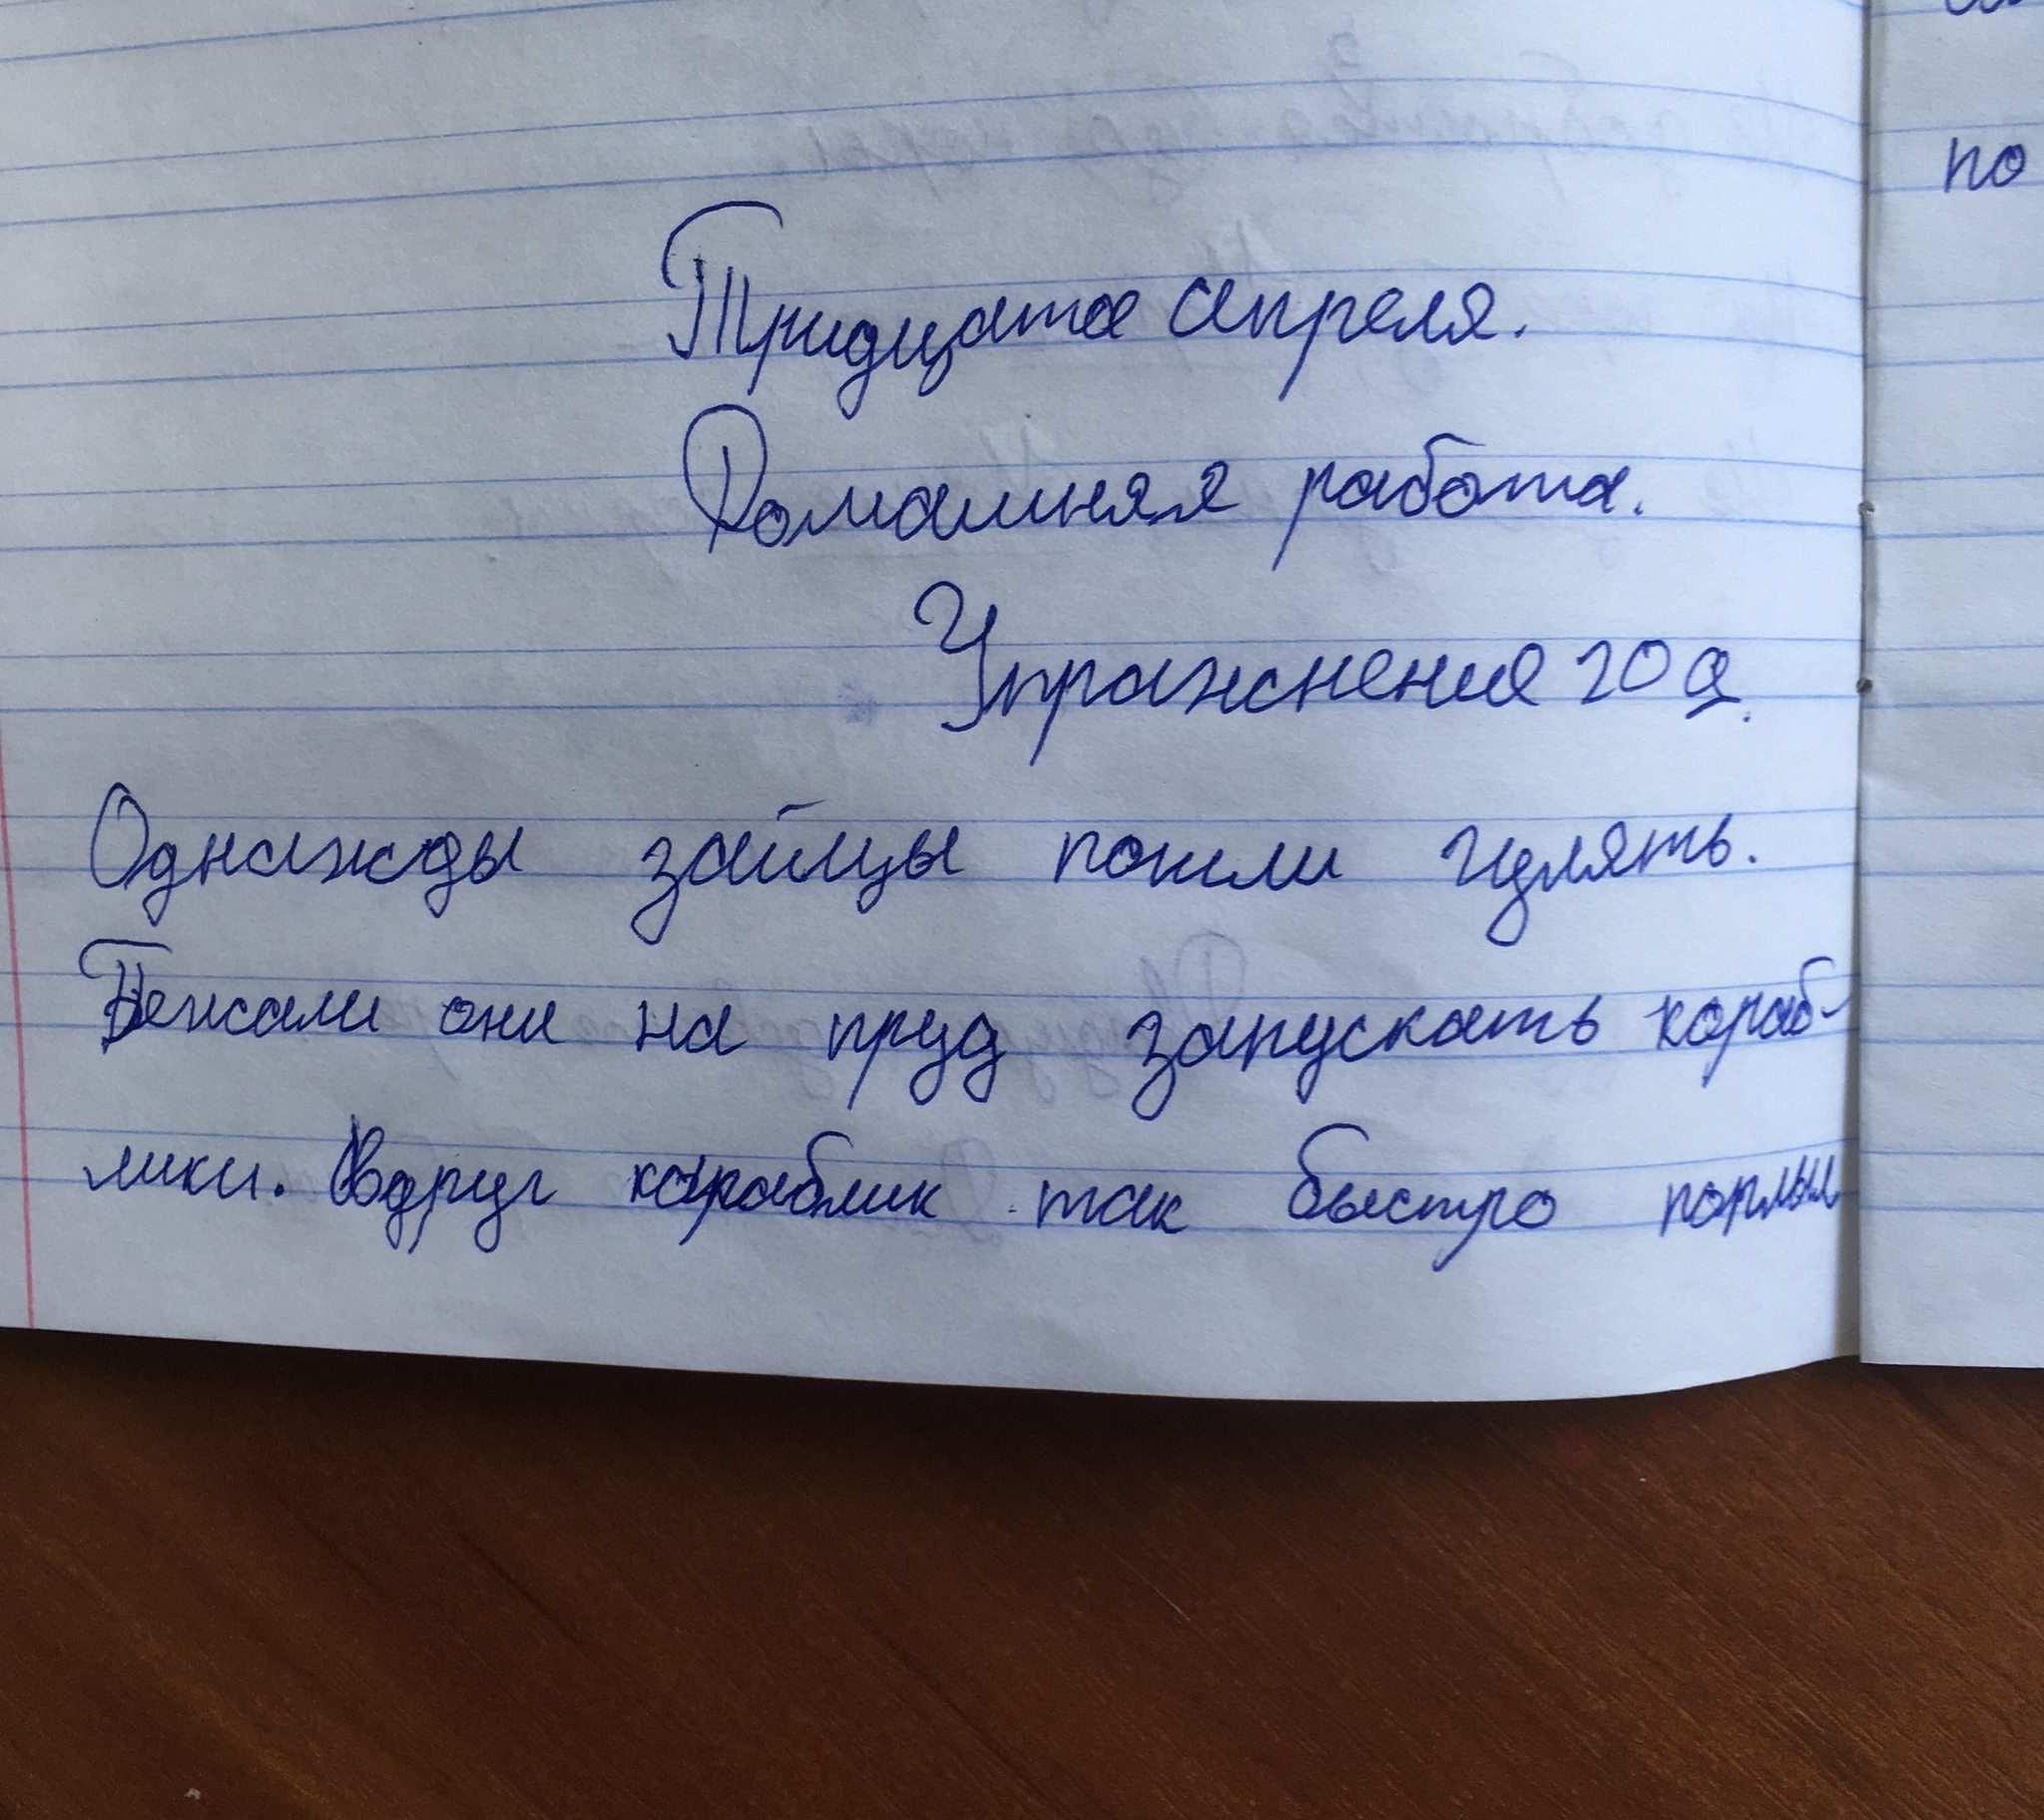 Тридцата апреля.
Домашняя работа.
Упражнения 20 а.
Однажды зайцы пошли гулять.
Бежали они на пруд запускать кораб-
лики. Вдруг кораблик так быстро
по